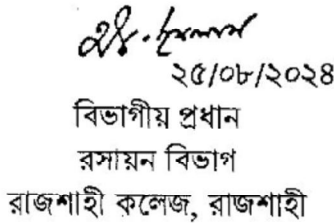 ২৫/০৮/২০২৪
বিভাগীয় প্রধান
রসায়ন বিভাগ
রাজশাহী কলেজ, রাজশাহী